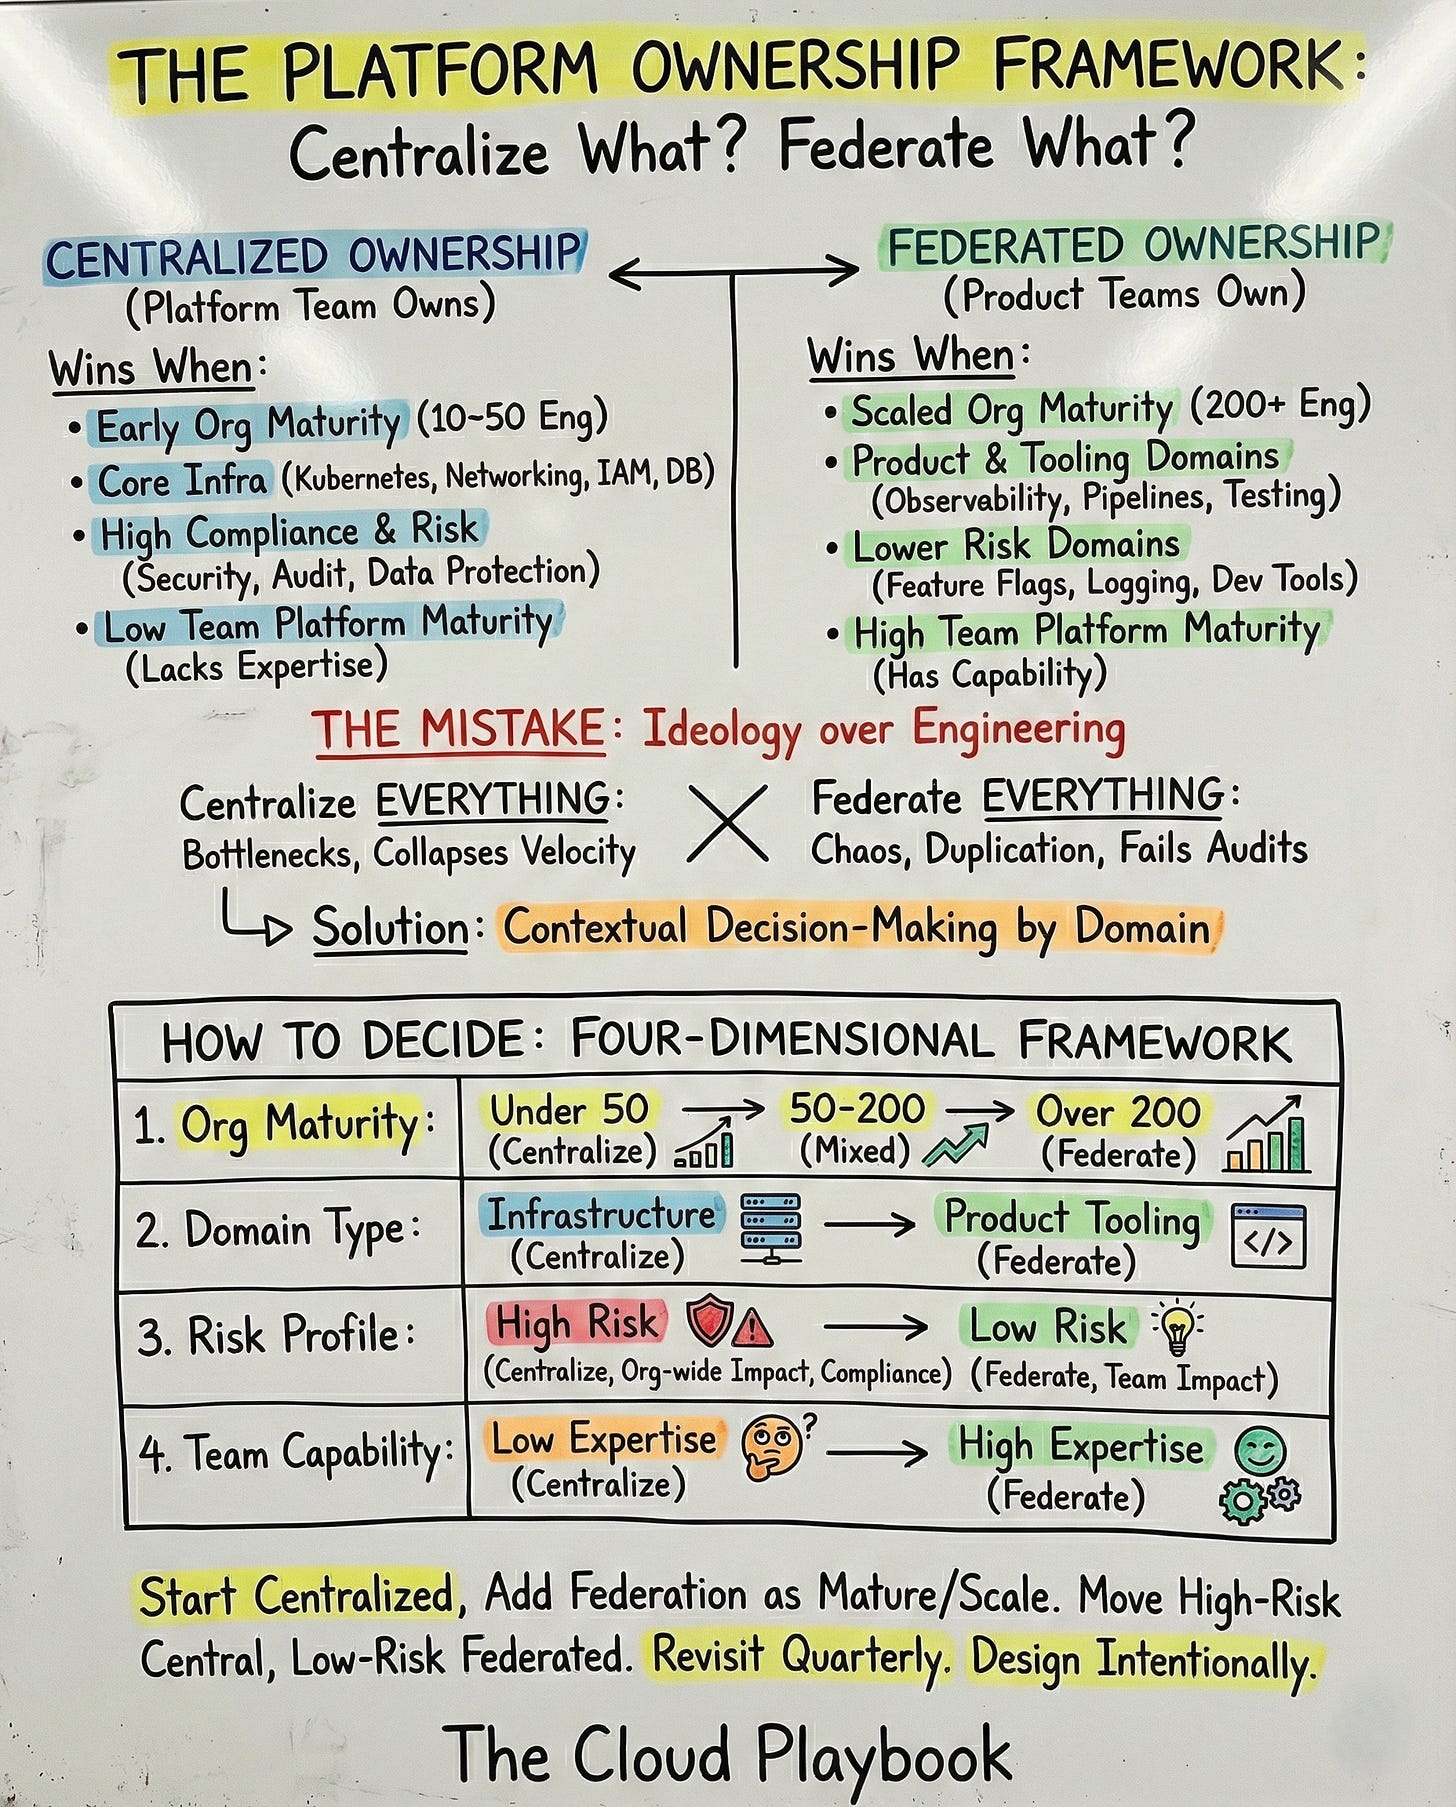 THE PLATFORM OWNERSHIP FRAMEWORK:
Centralize What? Federate What?
CENTRALIZED OWNERSHIP
(Platform Team Owns)
Wins When:
• Early Org Maturity (10-50 Eng)
• Core Infra (Kubernetes, Networking, IAM, DB)
• High Compliance & Risk
(Security, Audit, Data Protection)
• Low Team Platform Maturity
(Lacks Expertise)
FEDERATED OWNERSHIP
(Product Teams Own)
Wins When:
• Scaled Org Maturity (200+ Eng)
• Product & Tooling Domains
(Observability, Pipelines, Testing)
• Lower Risk Domains
(Feature Flags, Logging, Dev Tools)
• High Team Platform Maturity
(Has Capability)
THE MISTAKE: Ideology over Engineering
Centralize EVERYTHING:
Bottlenecks, Collapses Velocity
Federate EVERYTHING:
Chaos, Duplication, Fails Audits
Solution: Contextual Decision-Making by Domain
HOW TO DECIDE: FOUR-DIMENSIONAL FRAMEWORK
1. Org Maturity:
Under 50
(Centralize)
50-200
(Mixed)
Over 200
(Federate)
2. Domain Type:
Infrastructure
(Centralize)
Product Tooling
(Federate)
</>
3. Risk Profile:
High Risk
(Centralize, Org-wide Impact, Compliance)
Low Risk
(Federate, Team Impact)
4. Team Capability:
Low Expertise
(Centralize)
?
High Expertise
(Federate)
Start Centralized, Add Federation as Mature/Scale. Move High-Risk
Central, Low-Risk Federated. Revisit Quarterly. Design Intentionally.
The Cloud Playbook